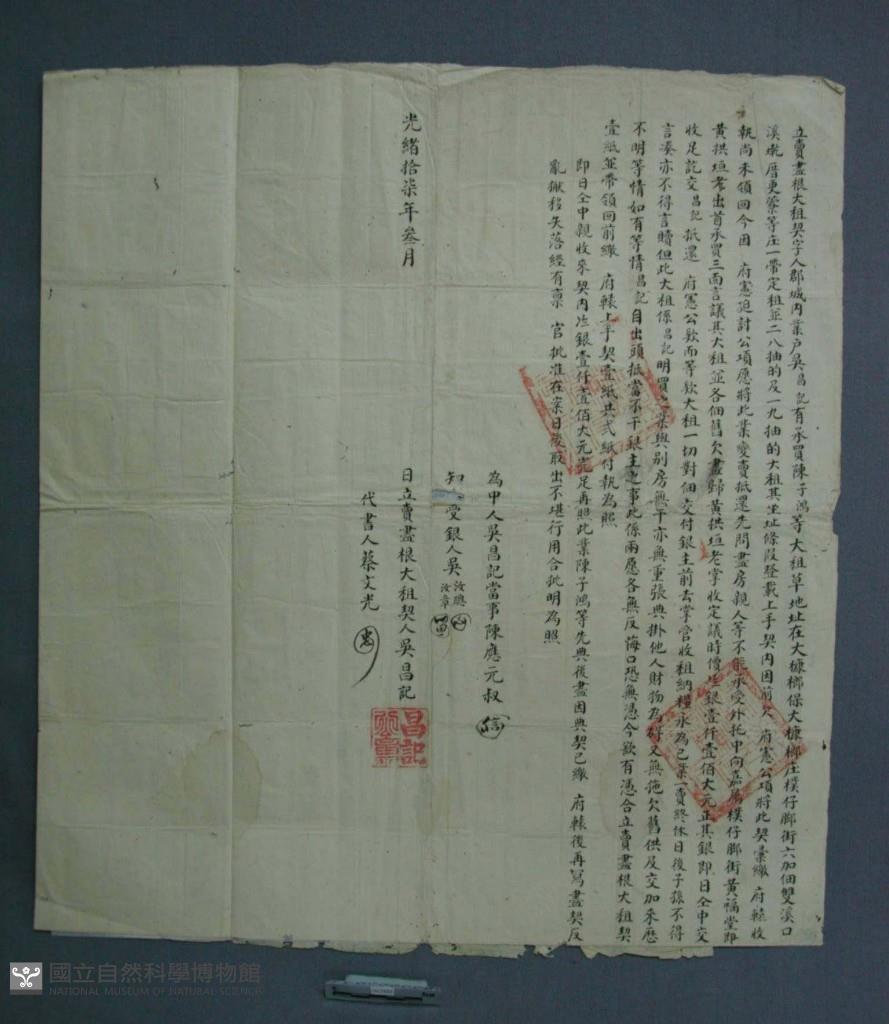 立賣盡根大租契字人郡城內業戶吳昌記有承買陳子鴻等大租草地址在大糠榔保大糠榔庄樸仔脚街六加佃雙溪口
溪墘厝更寮等庄一帶定租並二八抽的及一九抽的大租其坐址條段登載上手契內因前欠 府憲公項將此契彙繳 府轅收
執尚未領回今因 府憲迫討公項愿將此業變賣抵還先問盡房親人等不能承受外托中向嘉屬樸仔脚街黃福堂即
黃拱垣老出首承買三面言議其大租並各佃舊欠盡歸黃拱垣老掌收定議時價 銀壹仟壹佰大元正其銀即日仝中交
收足訖交昌記抵還 府憲公款而等欵大租一切對佃交付銀主前去掌管收租納糧永為己業一賣終休日後子孫不得
言湊亦不得言贖但此大租係昌記明買之業與別房無干亦無重張典掛他人財物為碍又無拖欠舊供及交加來歷
不明等情如有等情昌記自出頭抵當不干銀主之事此係兩愿各無反悔口恐無憑今欲有憑合立賣盡根大租契
壹紙並帶領回前繳 府轅上手契壹紙共弍紙付執為照
即日仝中親收來契內 銀壹仟壹佰大元完足再照此業陳子鴻等先典後盡因典契已繳 府轅後再寫盡契反
亂獄移失落經有稟 官批准在案日後取出不堪行用合批明為照
為中人吳昌記當事陳應元叔
知 受銀人吳汝聰
汝章
光緒拾柒年叁月 日立賣盡根大租契人吳昌記
昌記
代書人蔡文光
國立自然科學博物館
NATIONAL MUSEUM OF NATURAL SCIENCE